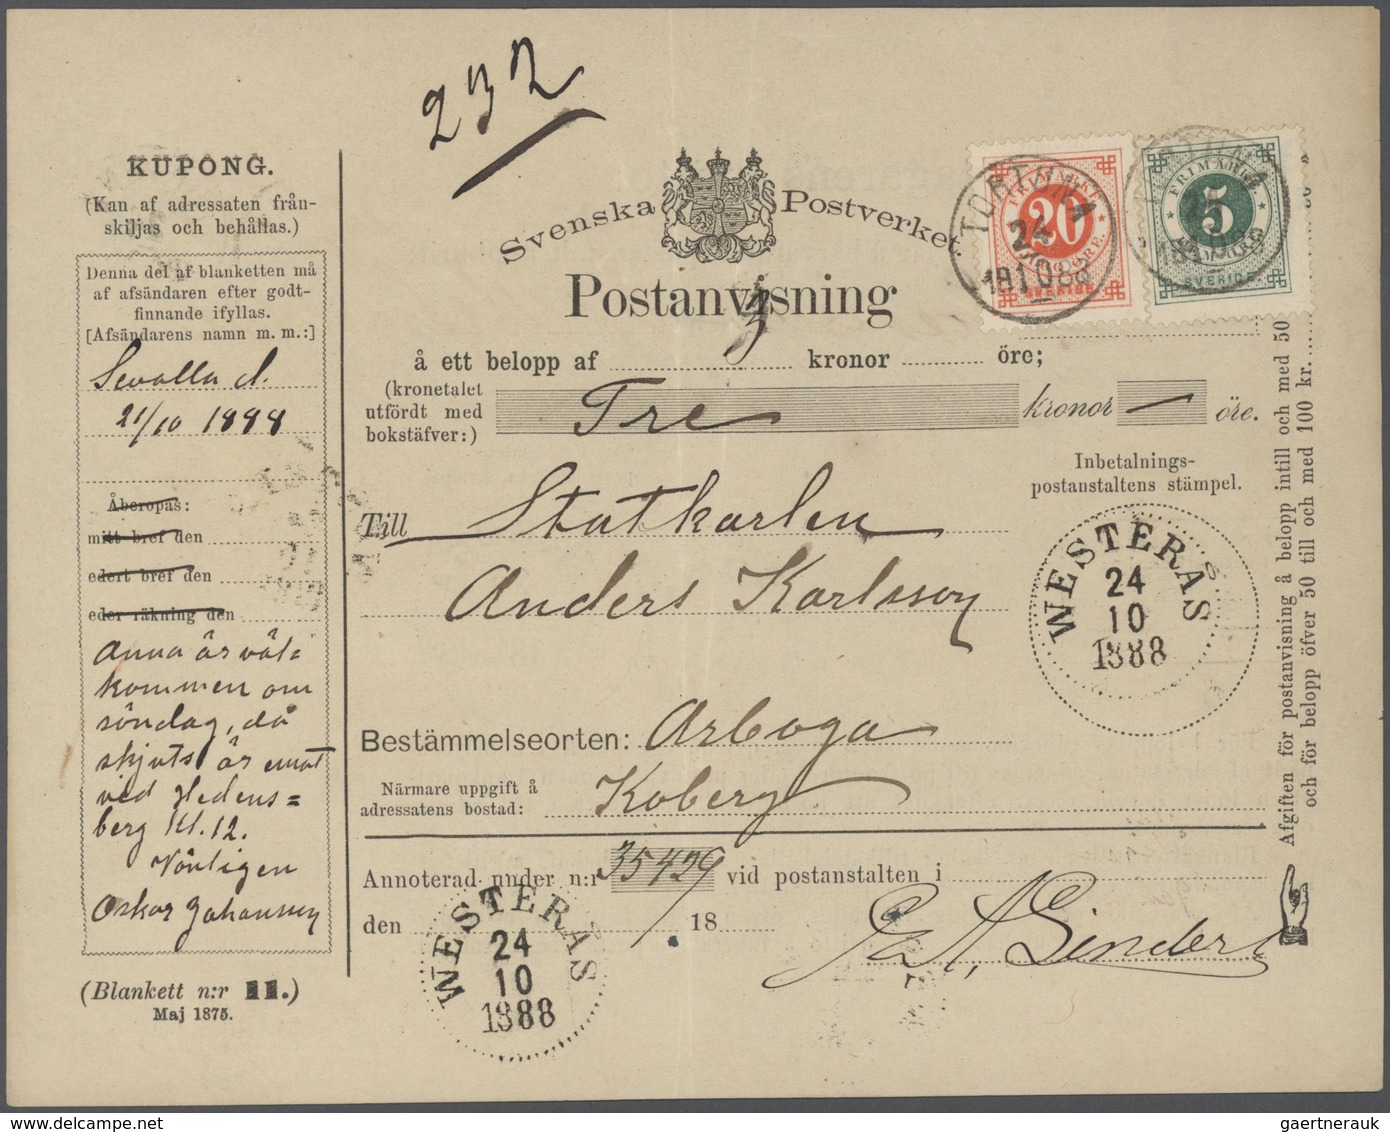 232
KUPONG.
(Kan af adressaten från-
skiljas och behållas.)
Denna del af blanketten må
af afsändaren efter godt-
finnande ifyllas.
[Afsändarens namn m. m.:]
Sevalla d.
21/10 1888
Åberopas:
mitt bref den
edert bref den
eder räkning den
Anna är väl-
kommen om
söndag, då
skjuts är emot
ved Hedens=
berg Kl. 12.
Vänligen
Oskar Johansson
(Blankett n:r 11.)
Maj 1875.
Svenska Postverket
Postanvisning
å ett belopp af 3 kronor öre;
(kronetalet
utfördt med
bokstäfver:)
Tre kronor — öre.
Inbetalnings-
postanstaltens stämpel.
Till Statkarlen
Anders Karlsson
WESTERÅS
24
10
1888
Bestämmelseorten: Arboga
Närmare uppgift å
adressatens bostad: Koberg
Annoterad under n:r 35429 vid postanstalten i
den 18
WESTERÅS
24
10
1888
TORTUNA
24
10
1888
FRIMÄRKE
20
ÖRE.
SVERIGE
FRIMÄRKE
5
SVERIGE
Afgiften för postanvisning å belopp intill och med 50
och för belopp öfver 50 till och med 100 kr.
gaertnerauk